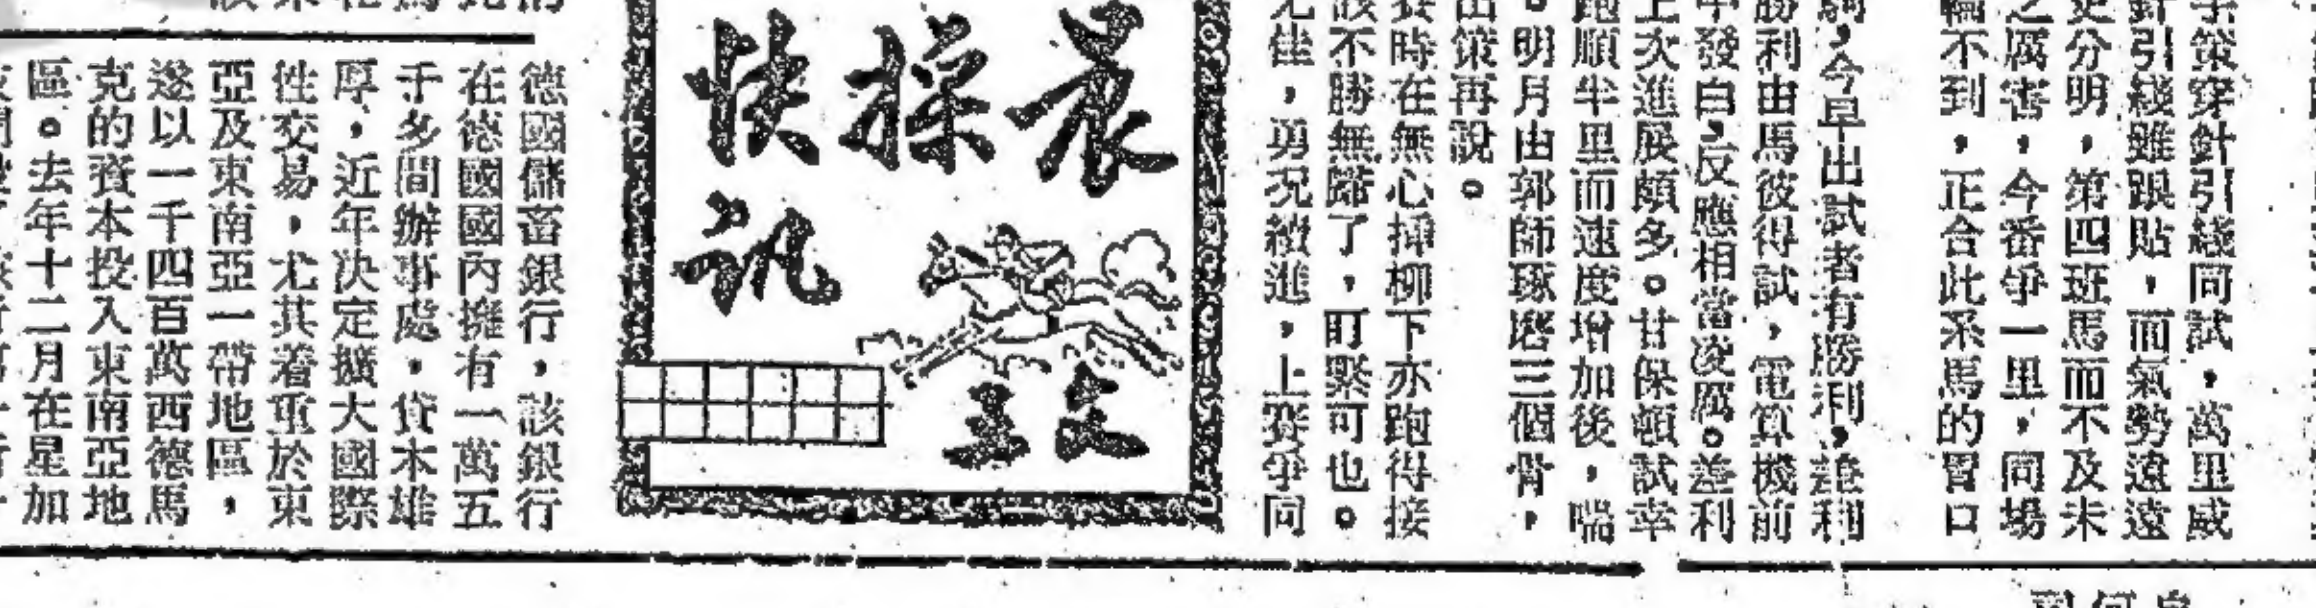 策穿針引綫同試，萬里威
針引綫雖跟貼，而氣勢遠遠
更分明，第四班馬而不及未
之厲害，今番爭一里，同場
輪不到，正合此系馬的胃口
駒，今早出試者有勝利，善利
勝利由馬彼得試，電算機前
發白，反應相當凌厲。善利
上次進展頗多。甘保頓試幸
跑順半里而速度增加後，喘
。明月由郭師琢磨三個骨，
出策再說。
時在無心揷柳下亦跑得接
該不勝無歸了，盯緊可也。
尤佳，勇況續進，上賽爭同
晨操快訊
文王
德國儲畜銀行，該銀行
在德國國內擁有一萬五
千多間辦事處，資本雄
厚，近年决定擴大國際
性交易，尤其着重於東
亞及東南亞一帶地區，
遂以一千四百萬西德馬
克的資本投入東南亞地
區。去年十二月在星加